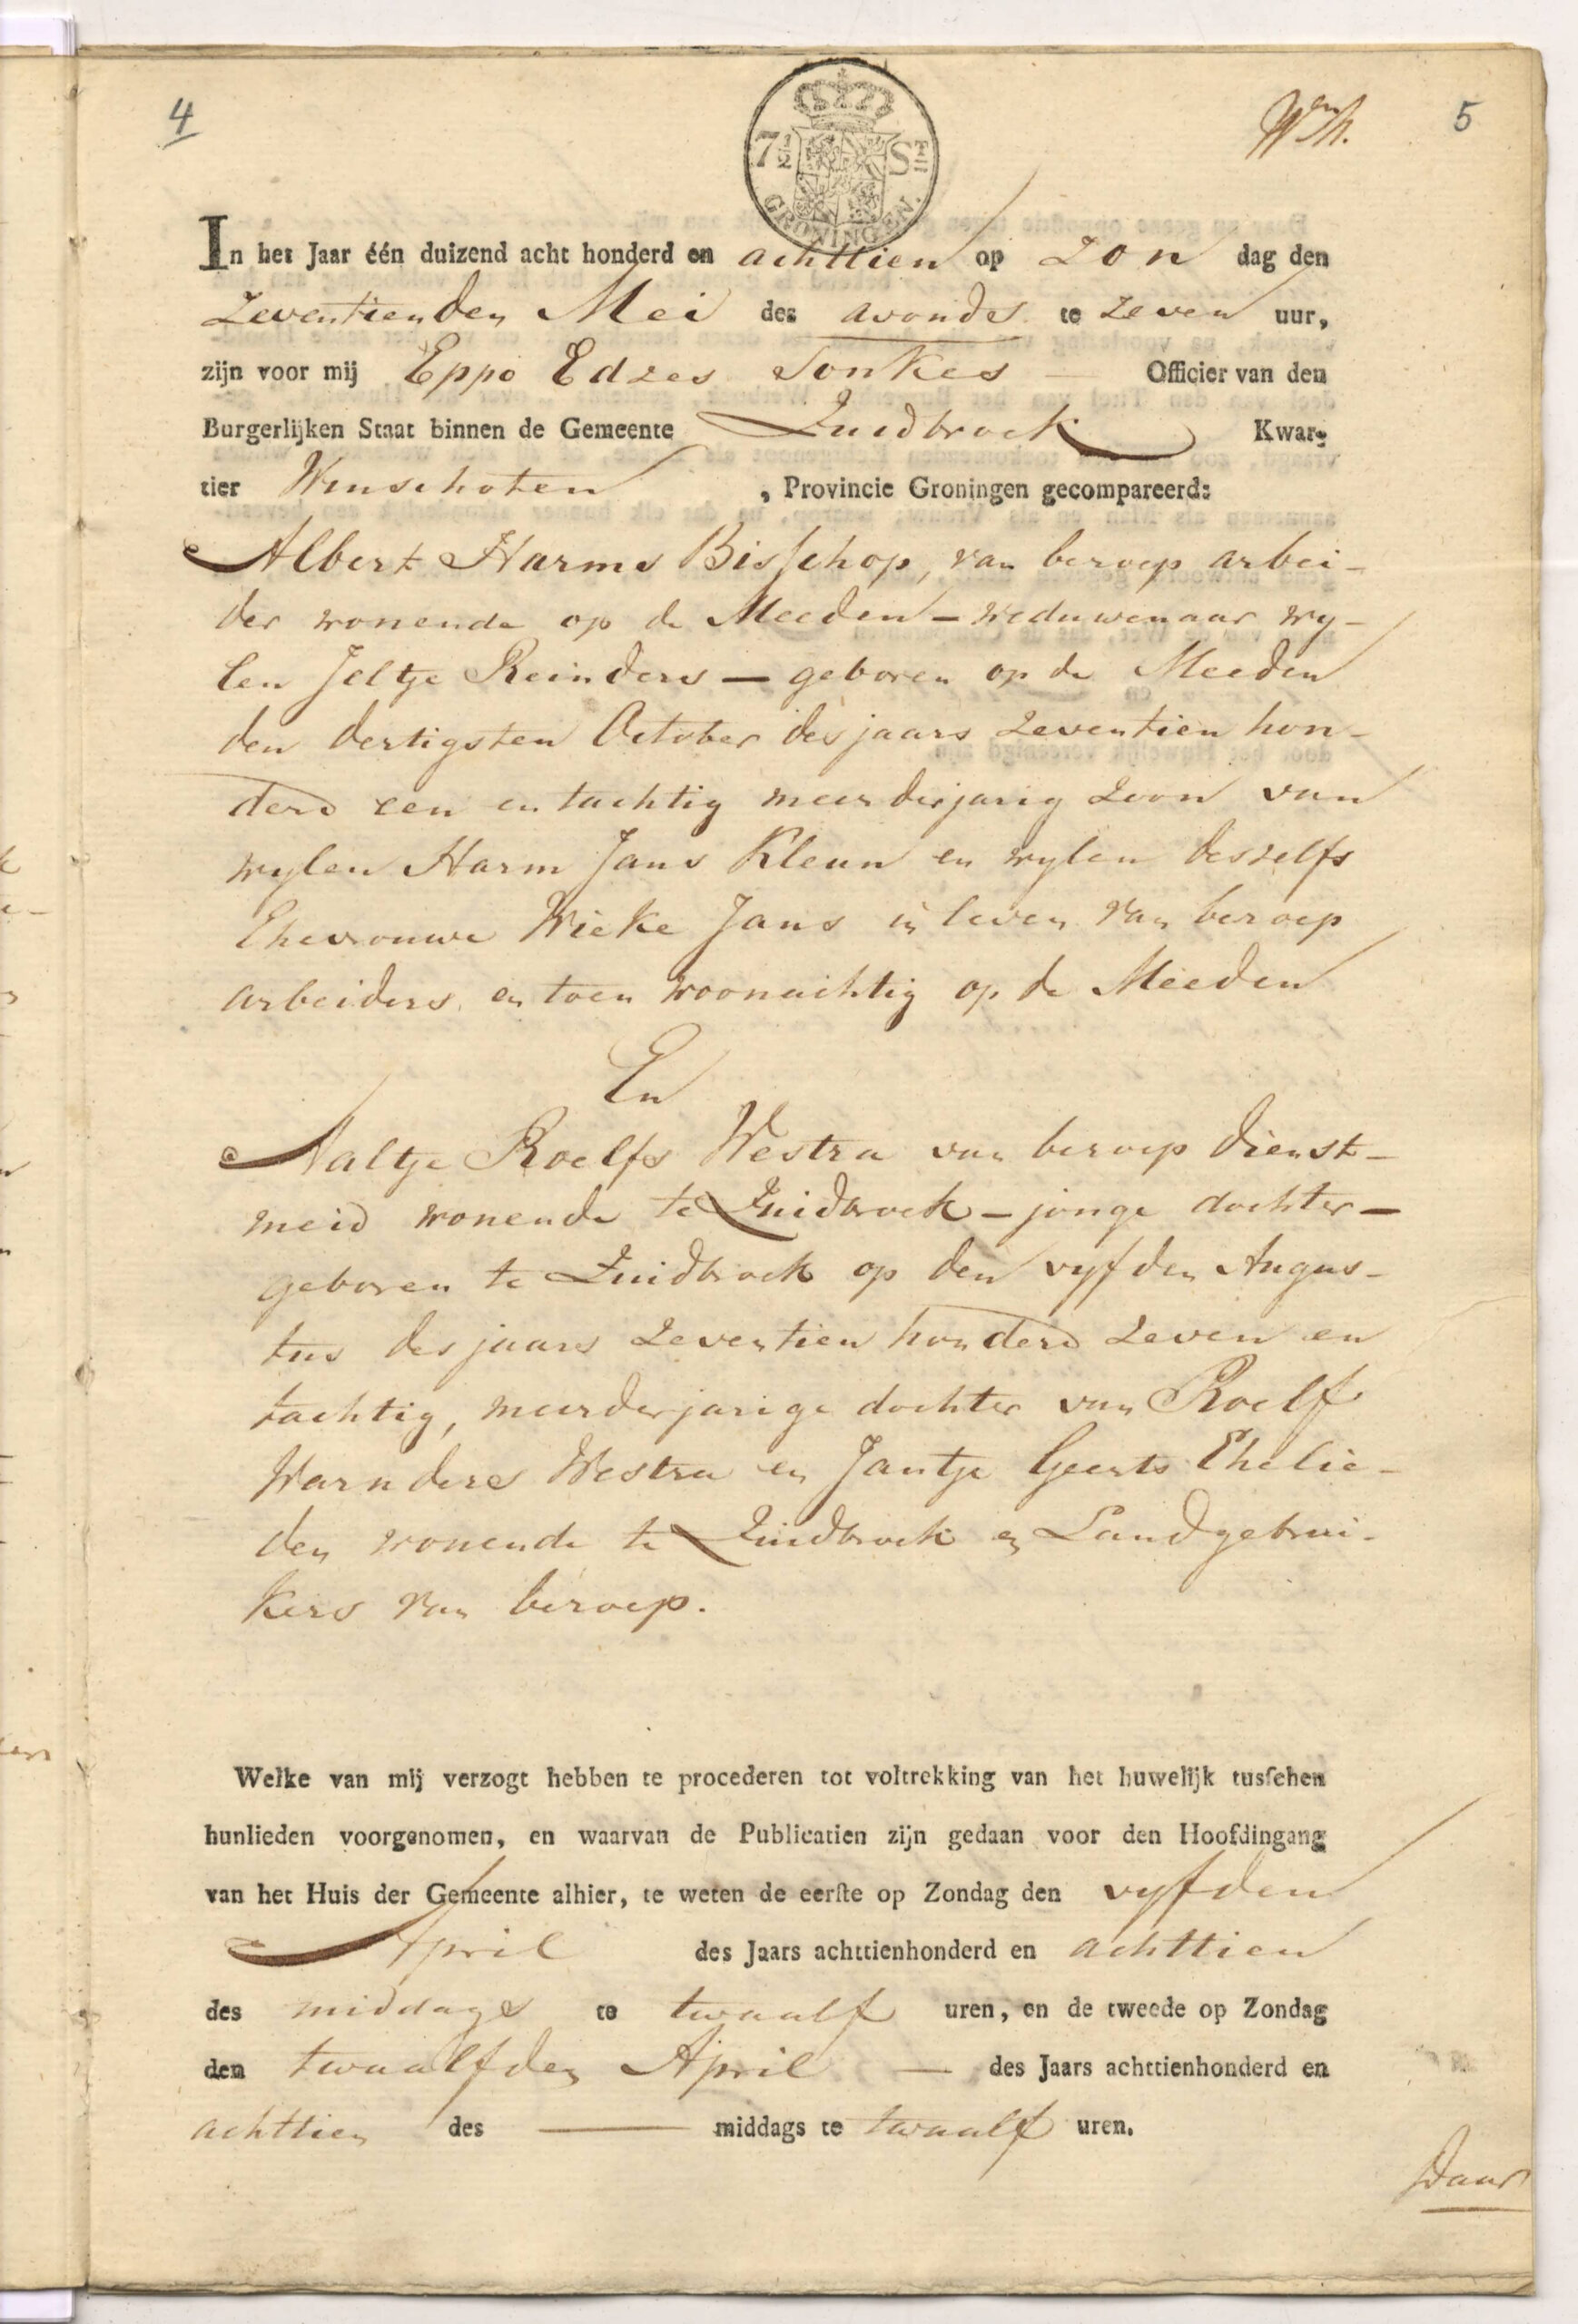 4
5
7½ St
GRONINGEN.
In het Jaar één duizend acht honderd en achttien op zon dag den
zeventienden Mei des avonds te zeven uur,
zijn voor mij Eppo Edzes Tonkes — Officier van den
Burgerlijken Staat binnen de Gemeente Zuidbroek Kwar-
tier Winschoten , Provincie Groningen gecompareerd:
Albert Harms Bisschop, van beroep arbei-
der wonende op de Meeden – weduwenaar wy-
len Jeltje Reinders – geboren op de Meeden
den dertigsten October des jaars zeventien hon-
derd een en tachtig meerderjarig zoon van
wylen Harm Jans Kleun en wylen deszelfs
Ehevrouwe Wieke Jans in leven van beroep
arbeiders en toen woonachtig op de Meeden
En
Aaltje Roelfs Westra van beroep dienst-
meid wonende te Zuidbroek – jonge dochter –
geboren te Zuidbroek op den vyfden Augus-
tus des jaars zeventien honderd zeven en
tachtig, meerderjarige dochter van Roelf
Warnders Westra en Jantje Geerts Ehelie-
den wonende te Zuidbroek en Landgebrui-
kers van beroep.
Welke van mij verzogt hebben te procederen tot voltrekking van het huwelijk tusschen
hunlieden voorgenomen, en waarvan de Publicatien zijn gedaan voor den Hoofdingang
van het Huis der Gemeente alhier, te weten de eerste op Zondag den vyfden
April des Jaars achttienhonderd en achttien
des middags te twaalf uren, en de tweede op Zondag
den twaalfden April — des Jaars achttienhonderd en
achttien des — middags te twaalf uren.
Daar